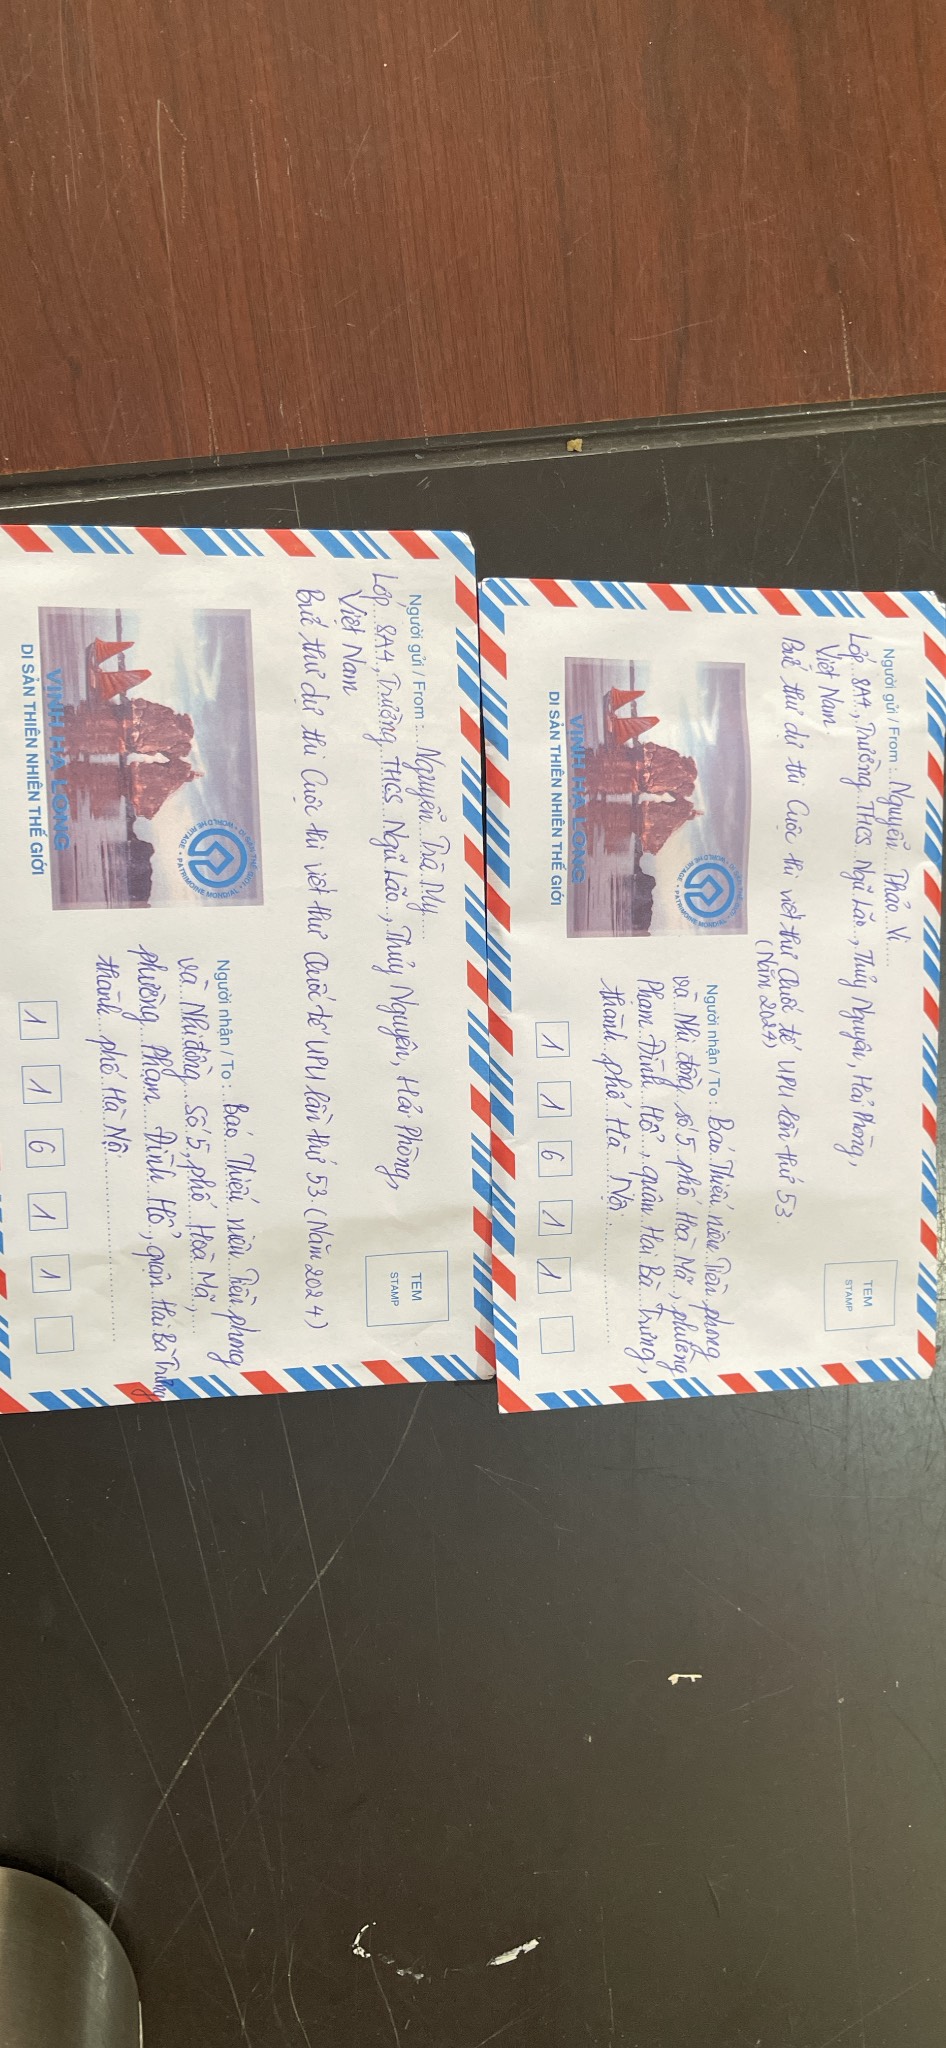 Người gửi / From : Nguyễn Thảo Vi
Lớp 8A4, Trường THCS Ngũ Lão, Thủy Nguyên, Hải Phòng,
Việt Nam.
Bức thư dự thi Cuộc thi viết thư Quốc tế UPU lần thứ 53
(Năm 2024)
TEM
STAMP
PATRIMOINE MONDIAL
VỊNH HẠ LONG
DI SẢN THIÊN NHIÊN THẾ GIỚI
Người nhận / To : Báo Thiếu niên Tiền phong
và Nhi đồng số 5 phố Hoà Mã, phường
Phạm Đình Hổ, quận Hai Bà Trưng,
thành phố Hà Nội.
1 1 6 1 1
Người gửi / From : Nguyễn Trà My
Lớp 8A4, Trường THCS Ngũ Lão, Thủy Nguyên, Hải Phòng,
Việt Nam
Bức thư dự thi Cuộc thi viết thư Quốc tế UPU lần thứ 53 (Năm 2024)
TEM
STAMP
PATRIMOINE MONDIAL
VỊNH HẠ LONG
DI SẢN THIÊN NHIÊN THẾ GIỚI
Người nhận / To : Báo Thiếu niên Tiền phong
và Nhi đồng Số 5, phố Hoà Mã,
phường Phạm Đình Hổ, quận Hai Bà Trưng
thành phố Hà Nội
1 1 6 1 1